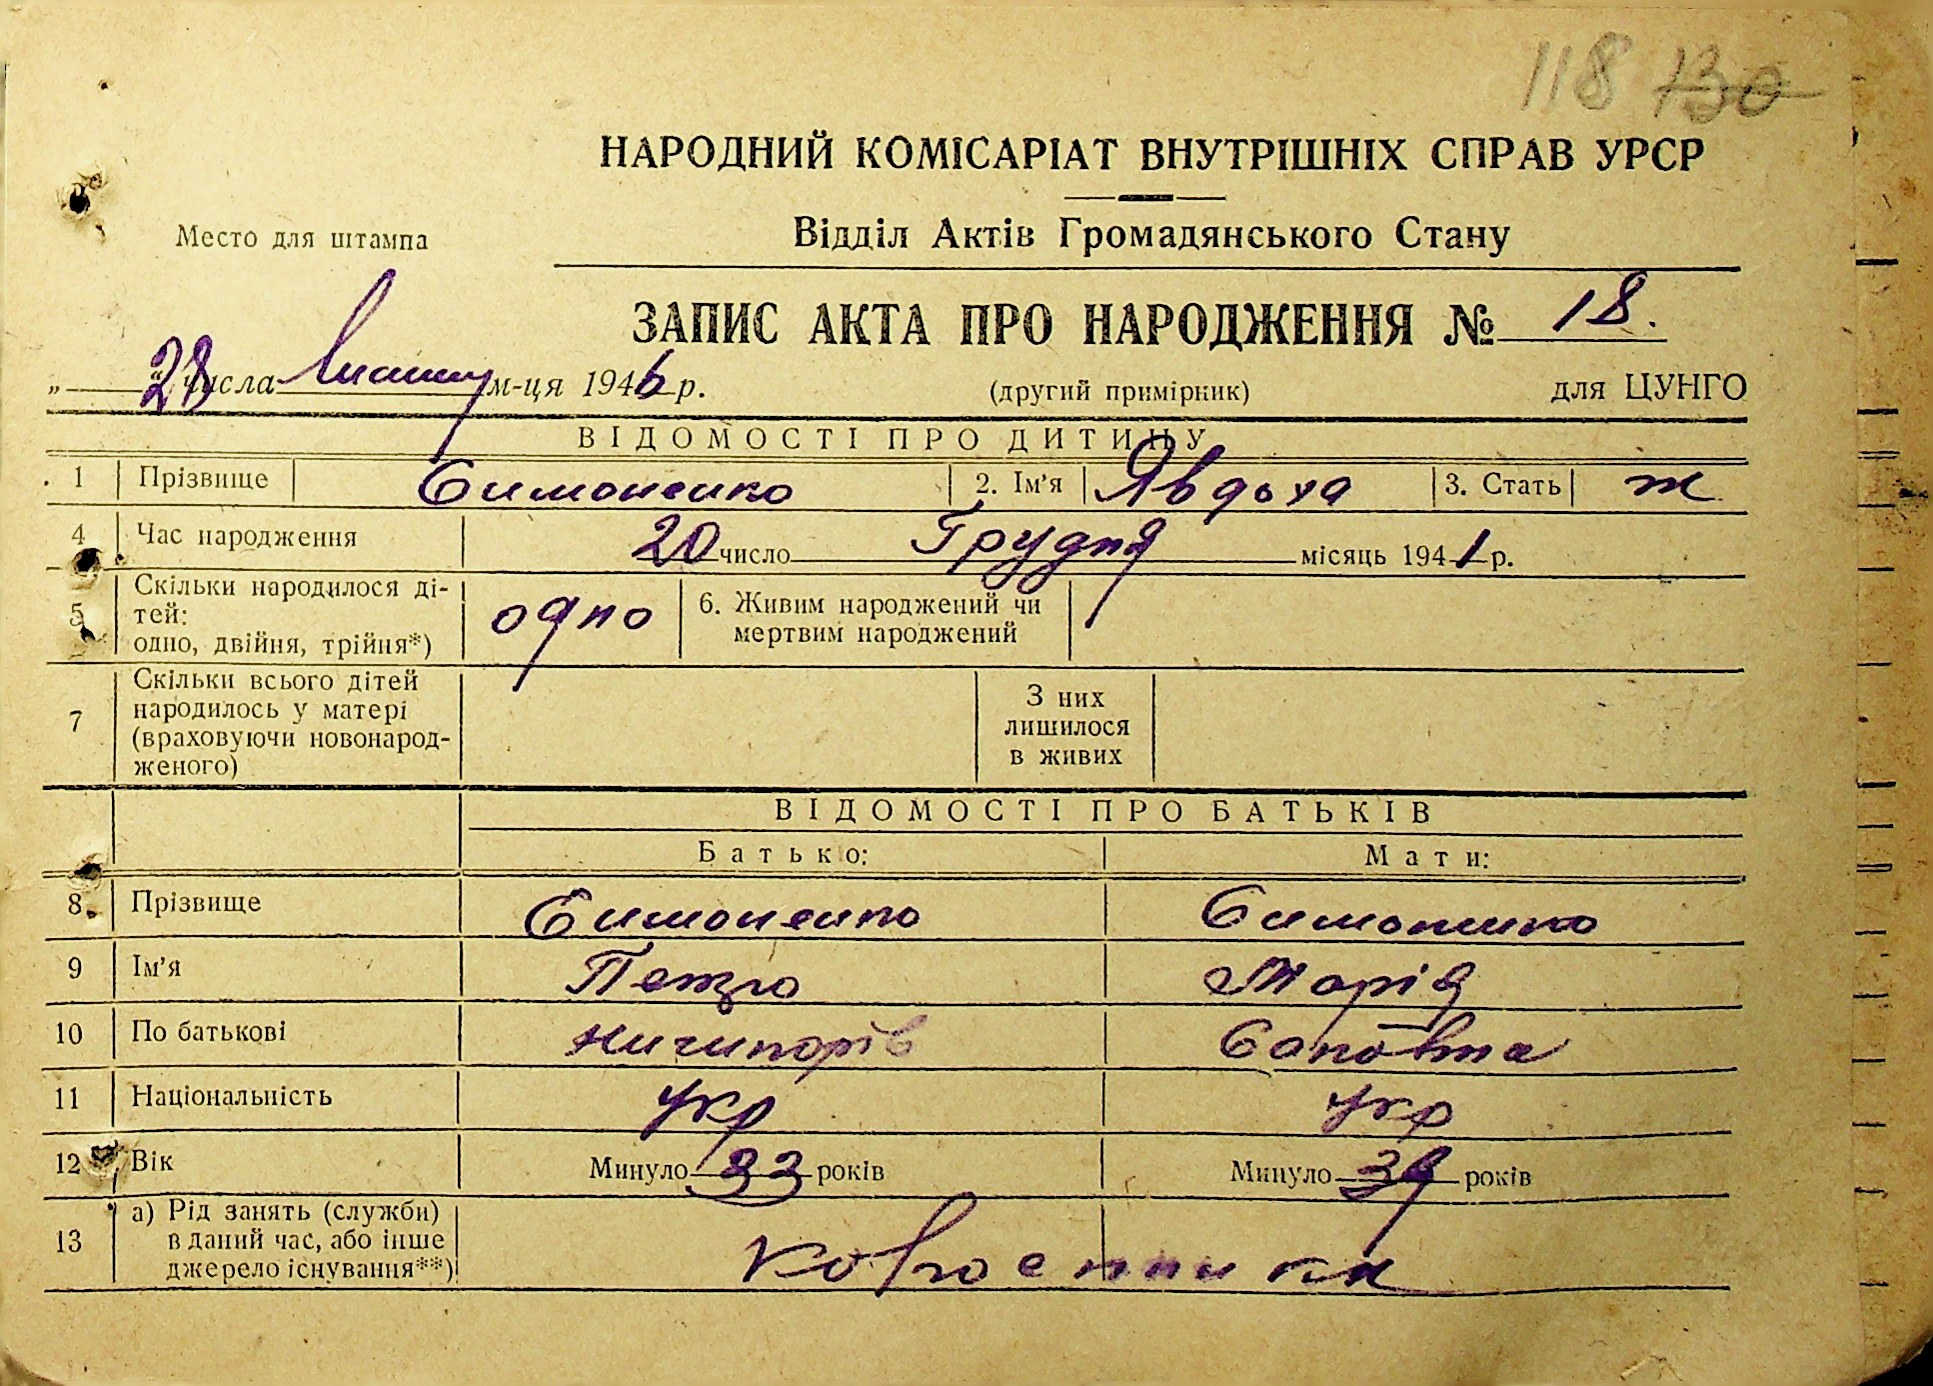 118 130
НАРОДНИЙ КОМІСАРІАТ ВНУТРІШНІХ СПРАВ УРСР
Место для штампа
Відділ Актів Громадянського Стану
ЗАПИС АКТА ПРО НАРОДЖЕННЯ № 18.
„ 28 “ числа м-ця 1946 р. (другий примірник) для ЦУНГО
ВІДОМОСТІ ПРО ДИТИНУ
1 Прізвище Симоненко 2. Ім'я Явдоха 3. Стать ж
4 Час народження 20 число Грудня місяць 1941 р.
5 Скільки народилося ді-
тей:
одно, двійня, трійня*) одно 6. Живим народжений чи
мертвим народжений
7 Скільки всього дітей
народилось у матері
(враховуючи новонарод-
женого) З них
лишилося
в живих
ВІДОМОСТІ ПРО БАТЬКІВ
Батько: Мати:
8. Прізвище Симоненко Симоненко
9 Ім'я Петро Марія
10 По батькові Ничипорів
11 Національність укр укр
12 Вік Минуло 33 років Минуло 39 років
13 а) Рід занять (служби)
в даний час, або інше
джерело існування**)